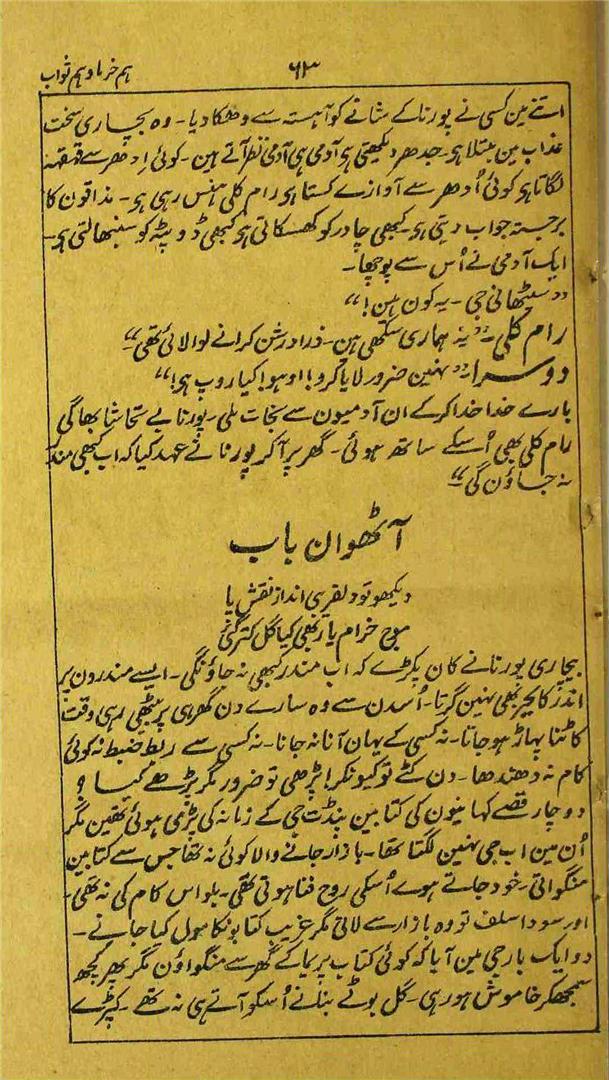 ہم خرما و ہم ثواب
۶۳
اتنے مین کسی نے پورنا کے شانے کو آہستہ سے دھکا دیا۔ وہ بچاری سخت
عذاب مین مبتلا ہو۔ جدھر دیکھتی ہو آدمی ہی آدمی نظر آتے ہین۔ کوئی ادھر سے قہقہہ
لگاتا ہو کوئی اُدھر سے آوازے کستا ہو رام کلی ہنس رہی ہو۔ مذاقون کا
برجستہ جواب دیتی ہو۔ کبھی چادر کو کھسکاتی ہو کبھی ڈوپٹہ کو سنبھالتی ہو۔
ایک آدمی نے اُس سے پوچھا۔
”سیٹھانی جی۔ یہ کون ہین!“
رام کلی۔ ”یہ ہماری سکھی ہین۔ ذرا درشن کرانے کو لائی تھی“
دوسرا۔ ”نہین ضرور لایا کرو! اوہو! کیا روپ ہی!“
بارے خدا خدا کر کے ان آدمیون سے نجات ملی۔ پورنا بے تحاشا بھاگی
رام کلی بھی اُسکے ساتھ ہوئی۔ گھر پر آکر پورنا نے عہد کیا کہ اب کبھی مندر
نہ جاؤن گی“
آٹھوان باب
دیکھو تو دلفریبی انداز نقش پا
موج خرام یار بھی کیا گل کتر گئی
بیچاری پورنا نے کان پکڑے کہ اب مندر کبھی نہ جاؤنگی۔ ایسے مندرون پر
اندر کا بجر بھی نہین گرتا۔ اُسدن سے وہ سارے دن گھر ہی پر بیٹھی رہی وقت
کاٹنا پہاڑ ہو جاتا۔ نہ کسی کے یہان آنا نہ جانا۔ نہ کسی سے ربط ضبط نہ کوئی
کام نہ دھندھا۔ دن کٹے تو کیونکر! پڑھی تو ضرور مگر پڑھے کیا؟
دو چار قصے کہانیون کی کتابین پنڈت جی کے زمانہ کی پڑی ہوئی تھین مگر
اُن مین اب جی نہین لگتا تھا۔ بازار جانے والا کوئی نہ تھا جس سے کتابین
منگواتی۔ خود جاتے ہوے اُسکی روح فنا ہوتی تھی۔ بلو اس کام کی نہ تھی۔
اور سودا سلف تو وہ بازار سے لاتی مگر غریب کتابونکا مول کیا جانے۔
دو ایک بار جی مین آیا کہ کوئی کتاب پریما کے گھر سے منگواؤن مگر پھر کچھ
سمجھکر خاموش ہو رہی۔ گل بوٹے بنانے اُسکو آتے ہی نہ تھے۔ کپڑے